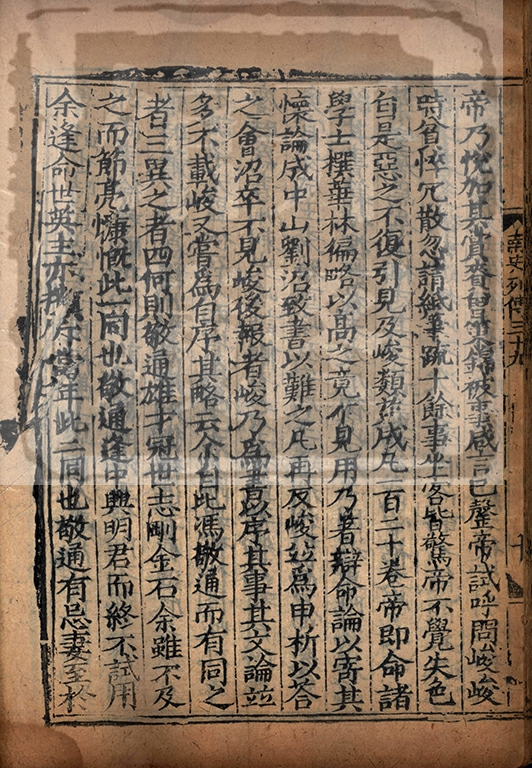 帝乃悅加其賞賚曾策錦被事咸言已罄帝試呼問峻峻
時貧悴冗散忽請紙筆疏十餘事坐客皆驚帝不覺失色
自是惡之不復引見及峻類苑成凡一百二十卷帝即命諸
學士撰華林徧略以高之竟不見用乃著辯命論以寄其
懷論成中山劉沼致書以難之凡再反峻並為申析以答
之會沼卒不見峻後報者峻乃為書以序其事其文論並
多不載峻又嘗為自序其略云余自比馮敬通而有同之
者三異之者四何則敬通雄才冠世志剛金石余雖不及
之而節亮慷慨此一同也敬通逢中興明君而終不試用
余逢命世英主亦當年此二同也敬通有忌妻至於
南史列傳三十九